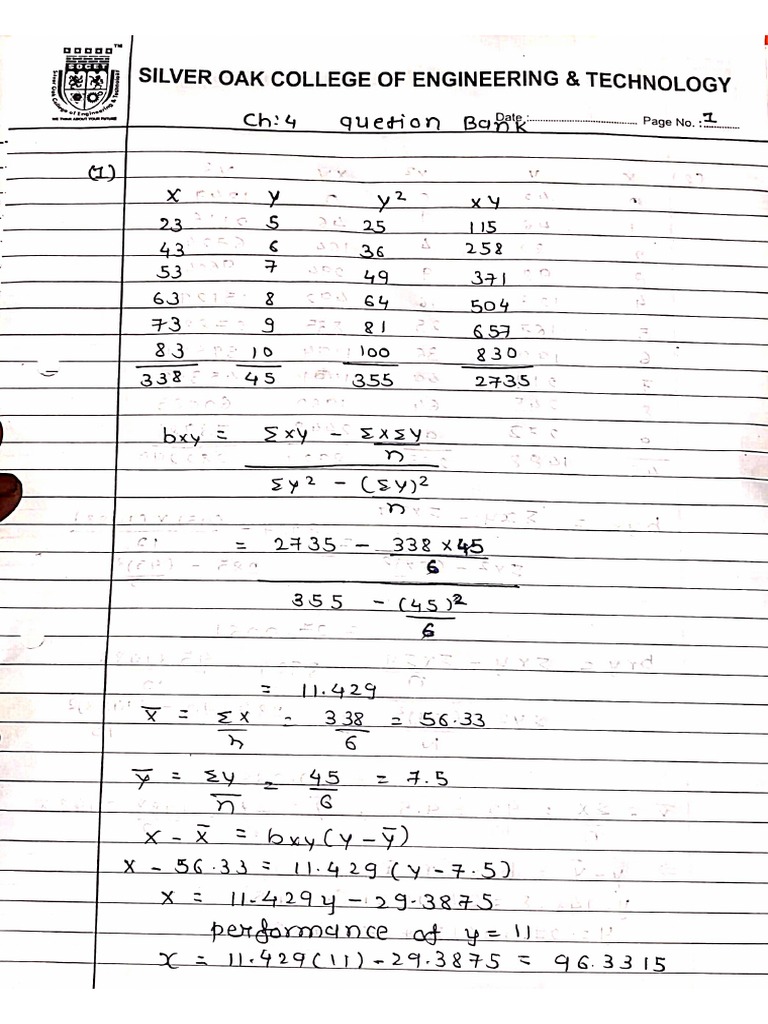 SILVER OAK COLLEGE OF ENGINEERING & TECHNOLOGY
WE THINK ABOUT YOUR FUTURE
Ch:4 quetion Bank Date :
Page No. : 1
(1)
x y y² xy
23 5 25 115
43 6 36 258
53 7 49 371
63 8 64 504
73 9 81 657
83 10 100 830
338 45 355 2735
bxy = Σxy - ΣxΣy/n
Σy² - (Σy)²/n
= 2735 - 338 × 45/6
355 - (45)²/6
= 11.429
x̄ = Σx/n = 338/6 = 56.33
ȳ = Σy/n = 45/6 = 7.5
x - x̄ = bxy (y - ȳ)
x - 56.33 = 11.429 (y - 7.5)
x = 11.429y - 29.3875
performance of y = 11
x = 11.429(11) - 29.3875 = 96.3315